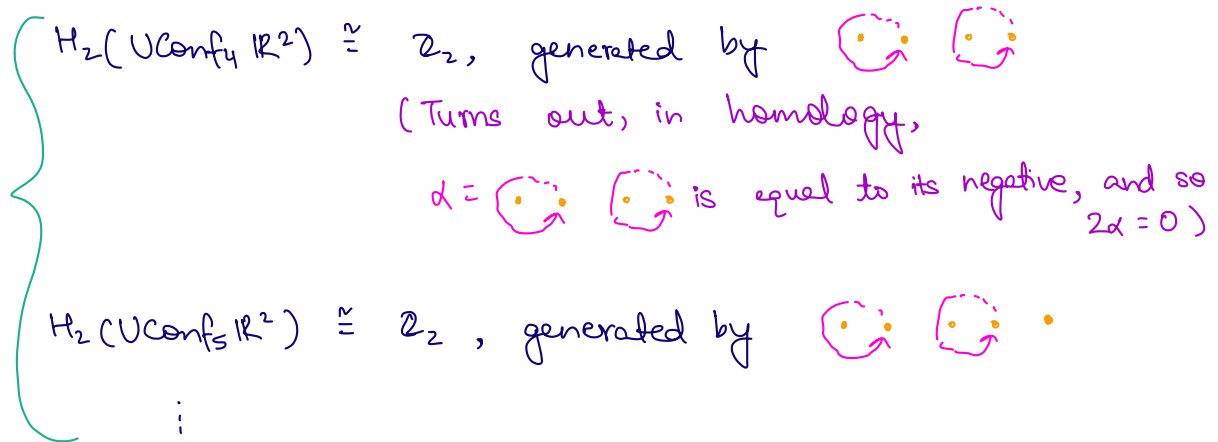 H₂(UConf₄ ℝ²) ≅ ℤ₂, generated by
(Turns out, in homology,
α = is equal to its negative, and so
2α = 0)
H₂(UConf₅ ℝ²) ≅ ℤ₂, generated by
⋮